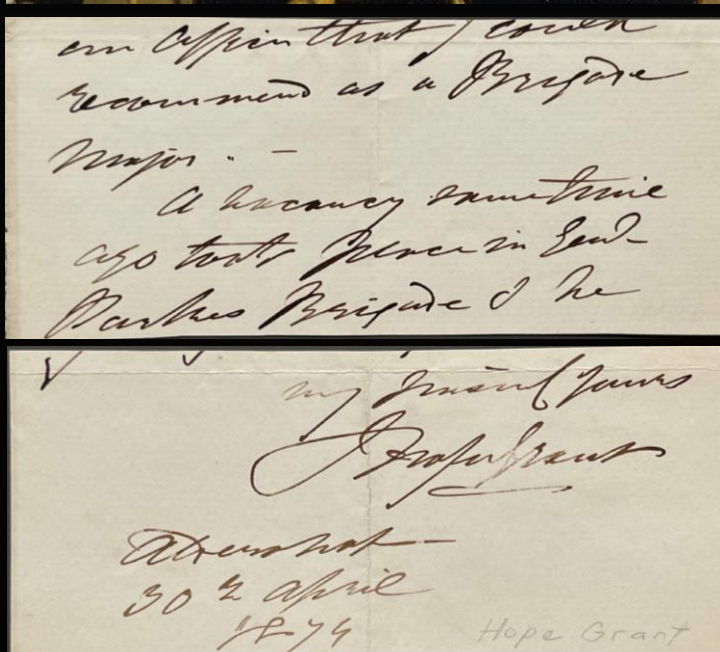 an officer that I could
recommend as a Brigade
Major. —
A vacancy sometime
ago took place in Genl
Parkes Brigade & he
my Yours
J Hope Grant
Aldershot —
30th April
1874
Hope Grant